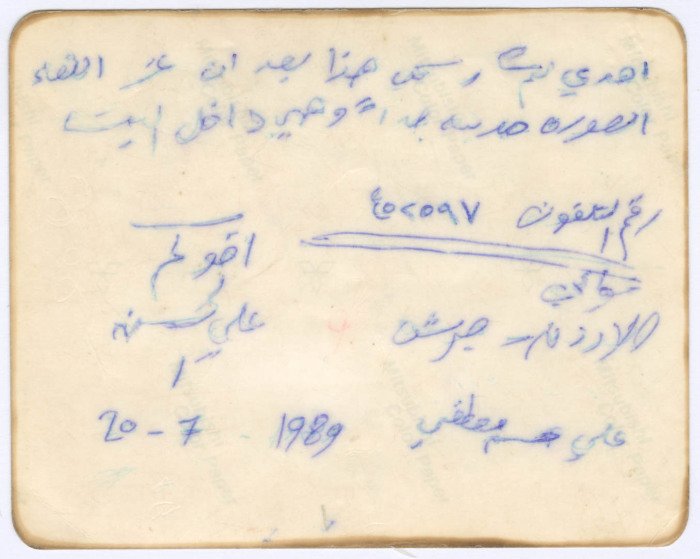 اهدي لكم رسمي هذا بعد ان عز اللقاء
الصورة حديثة جداً وهي داخل البيت
رقم التلفون ٤٥٢٥٩٧
اخوكم
علي حسن
الاردن - جرش
علي حسن مصطفى
20 - 7 - 1989